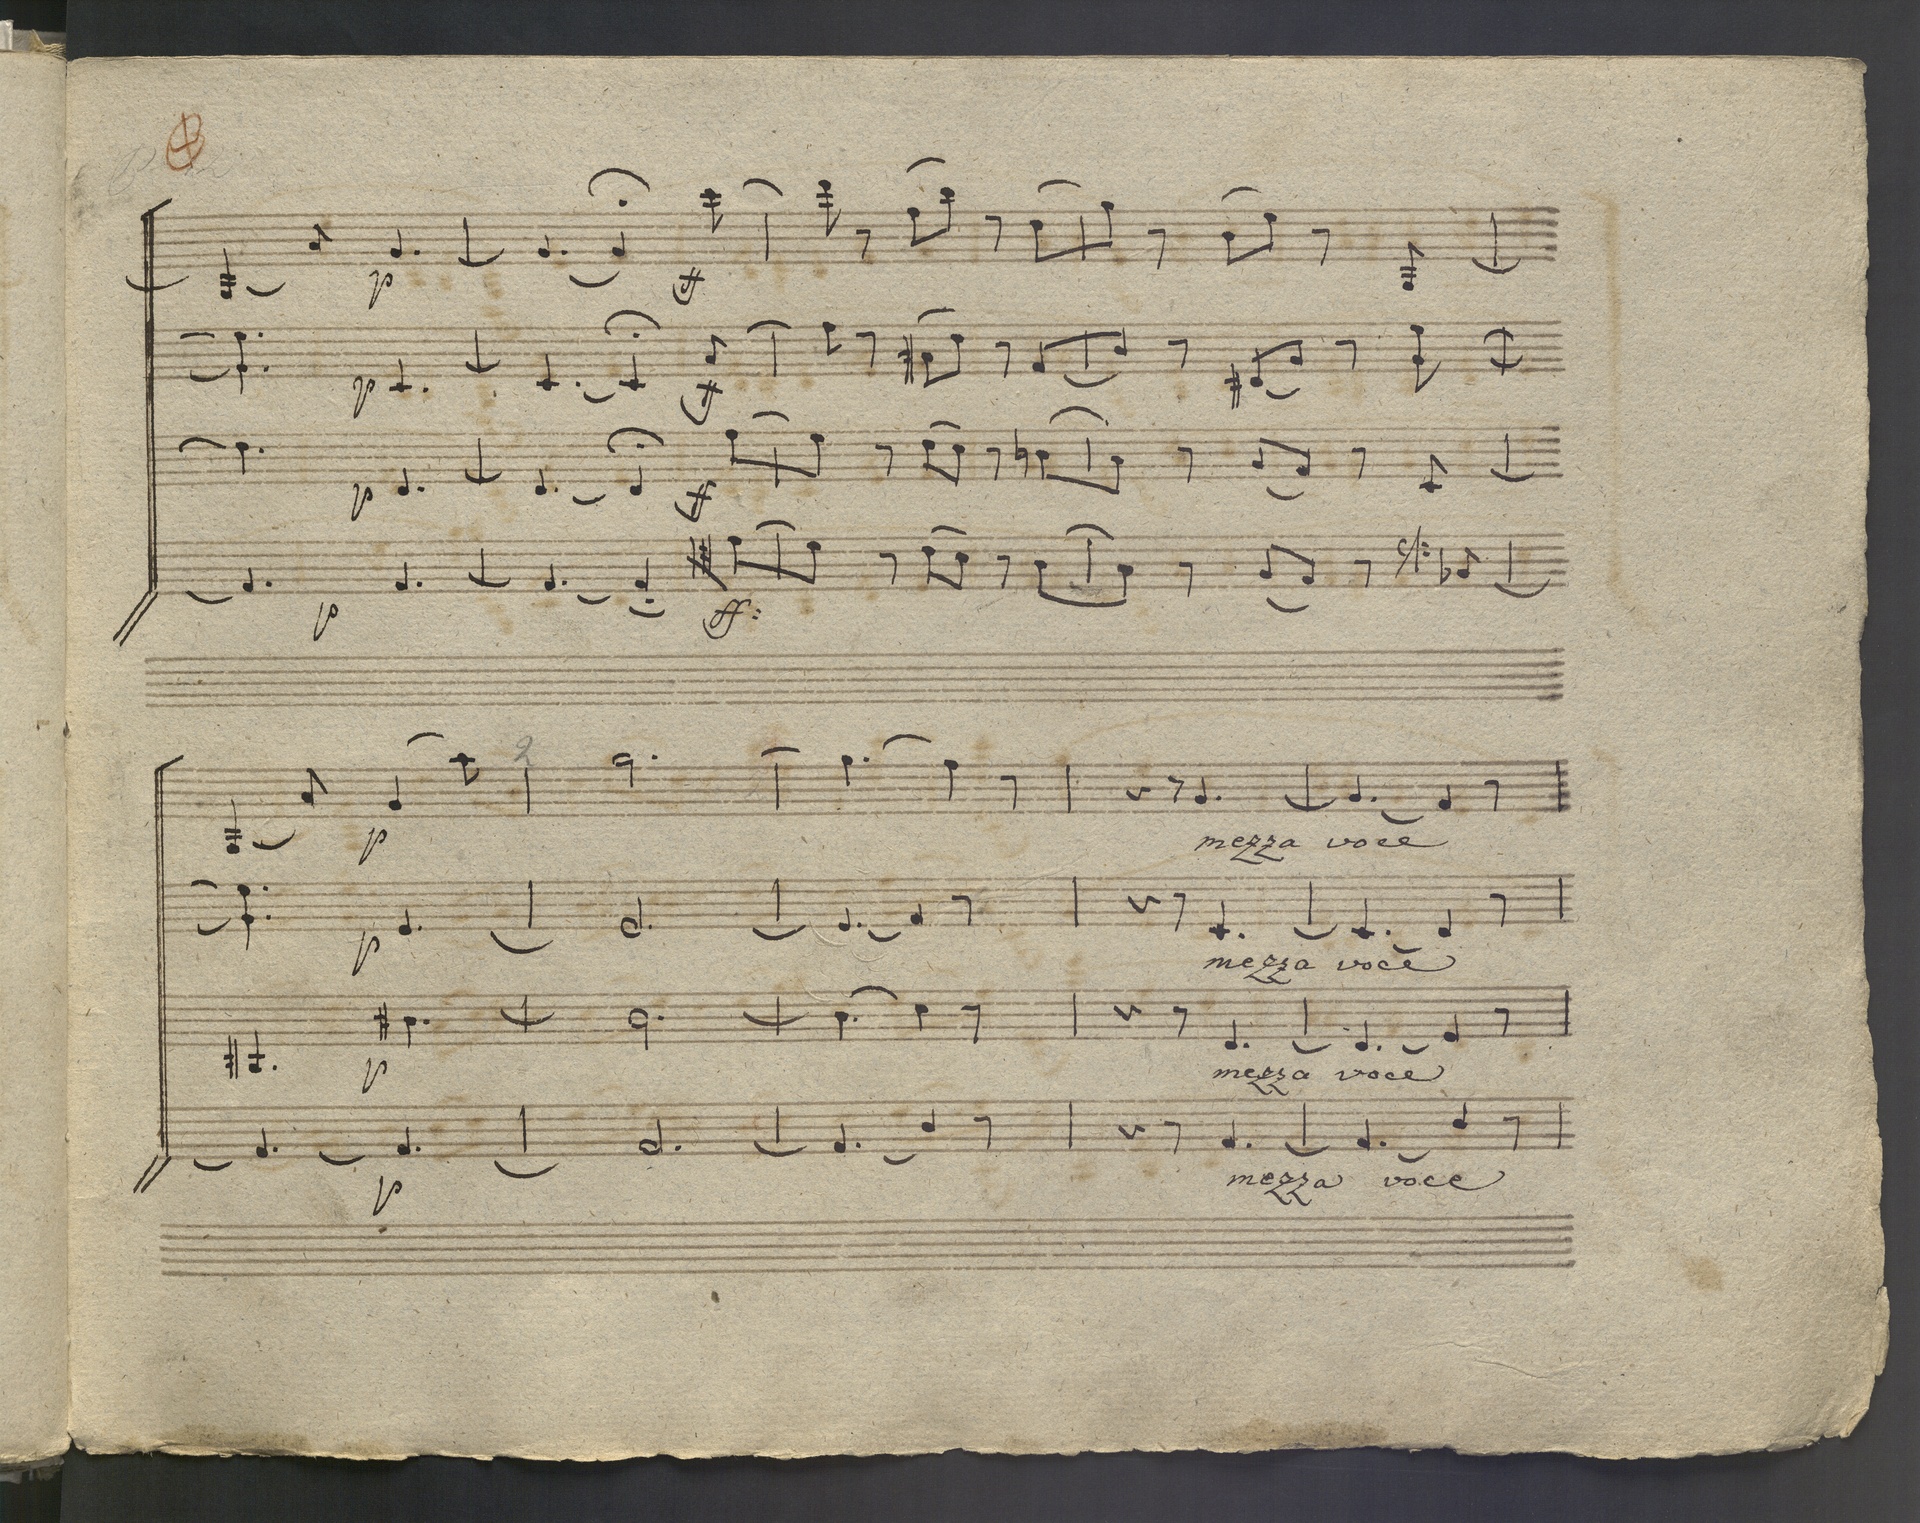 p ff
p ff
p ff
p ff:
2
p mezza voce
p mezza voce
p mezza voce
p mezza voce